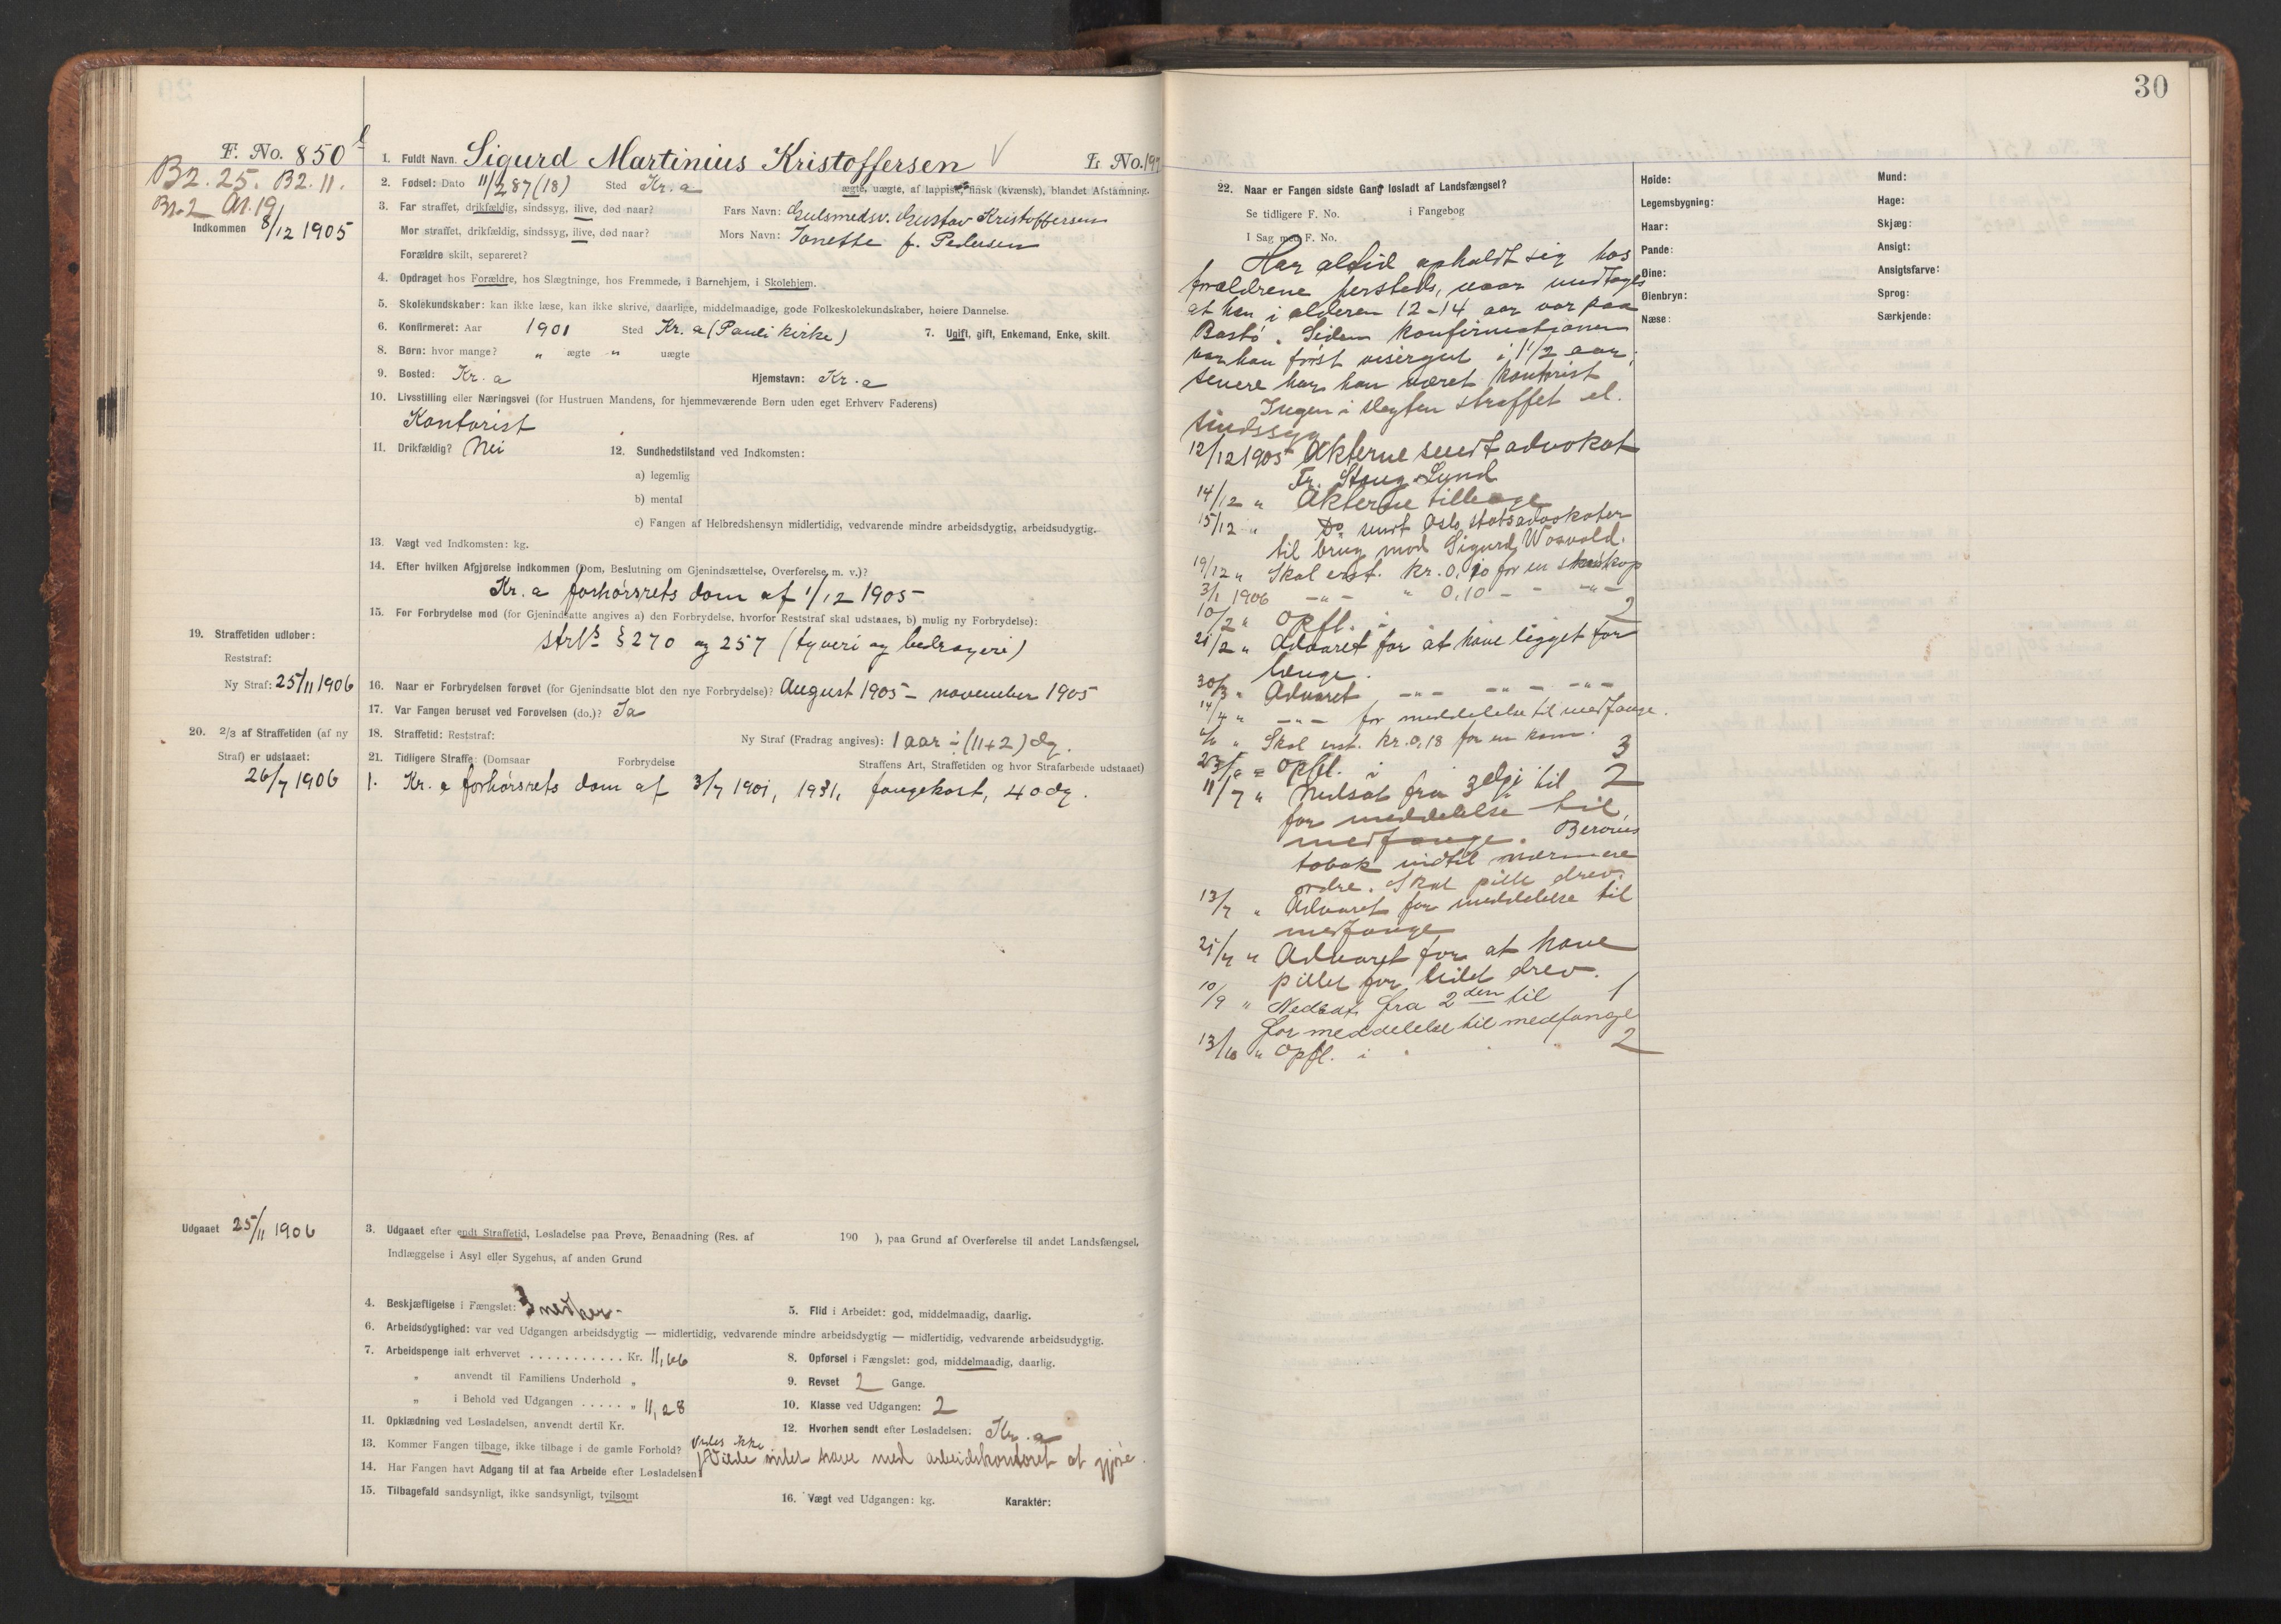 30
F. No. 850
B2. 25. B2. 11.
Br. 2 Ar. 19
Indkommen 8/12 1905
1. Fuldt Navn. Sigurd Martinius Kristoffersen L. No. 197
2. Fødsel: Dato 11/2 87 (18) Sted Kr.a ægte, uægte, af lappisk, finsk (kvænsk), blandet Afstamning.
3. Far straffet, drikfældig, sindssyg, ilive, død naar? Fars Navn: Gulsmedsv. Gustav Kristoffersen
Mor straffet, drikfældig, sindssyg, ilive, død naar? Mors Navn: Janette f. Pedersen
Forældre skilt, separeret?
4. Opdraget hos Forældre, hos Slægtninge, hos Fremmede, i Barnehjem, i Skolehjem.
5. Skolekundskaber: kan ikke læse, kan ikke skrive, daarlige, middelmaadige, gode Folkeskolekundskaber, høiere Dannelse.
6. Konfirmeret: Aar 1901 Sted Kr.a (Pauli kirke) 7. Ugift, gift, Enkemand, Enke, skilt.
8. Børn: hvor mange? " ægte " uægte
9. Bosted: Kr.a Hjemstavn: Kr.a
10. Livsstilling eller Næringsvei (for Hustruen Mandens, for hjemmeværende Børn uden eget Erhverv Faderens)
Kontorist
11. Drikfældig? Nei 12. Sundhedstilstand ved Indkomsten:
a) legemlig
b) mental
c) Fangen af Helbredshensyn midlertidig, vedvarende mindre arbeidsdygtig, arbeidsudygtig.
13. Vægt ved Indkomsten: kg.
14. Efter hvilken Afgjørelse indkommen (Dom, Beslutning om Gjenindsættelse, Overførelse m. v.)?
Kr.a forhørsrets dom af 1/12 1905
15. For Forbrydelse mod (for Gjenindsatte angives a) den Forbrydelse, hvorfor Reststraf skal udstaaes, b) mulig ny Forbrydelse):
strl's § 270 og 257 (tyveri og bedrageri)
19. Straffetiden udløber:
Reststraf:
Ny Straf: 25/11 1906
16. Naar er Forbrydelsen forøvet (for Gjenindsatte blot den nye Forbrydelse)? August 1905 - november 1905
17. Var Fangen beruset ved Forøvelsen (do.)? Ja
20. 2/3 af Straffetiden (af ny
Straf) er udstaaet:
26/7 1906
18. Straffetid: Reststraf: Ny Straf (Fradrag angives): 1 aar ÷ (11+2) dg.
21. Tidligere Straffe: (Domsaar Forbrydelse Straffens Art, Straffetiden og hvor Strafarbeide udstaaet)
1. Kr.a forhørsrets dom af 3/7 1901, 1931, fangekost, 40 dg.
Udgaaet 25/11 1906
3. Udgaaet efter endt Straffetid, Løsladelse paa Prøve, Benaadning (Res. af 190 ), paa Grund af Overførelse til andet Landsfængsel,
Indlæggelse i Asyl eller Sygehus, af anden Grund
4. Beskjæftigelse i Fængslet: Snedker 5. Flid i Arbeidet: god, middelmaadig, daarlig.
6. Arbeidsdygtighed: var ved Udgangen arbeidsdygtig — midlertidig, vedvarende mindre arbeidsdygtig — midlertidig, vedvarende arbeidsudygtig.
7. Arbeidspenge ialt erhvervet . . . . . . . . . . . Kr. 11,66 8. Opførsel i Fængslet: god, middelmaadig, daarlig.
" anvendt til Familiens Underhold " 9. Revset 2 Gange.
" i Behold ved Udgangen . . . . . " 11,28 10. Klasse ved Udgangen: 2
11. Opklædning ved Løsladelsen, anvendt dertil Kr. 12. Hvorhen sendt efter Løsladelsen: Kr.a
13. Kommer Fangen tilbage, ikke tilbage i de gamle Forhold? Vides ikke
14. Har Fangen havt Adgang til at faa Arbeide efter Løsladelsen? Vilde intet have med arbeidskontoret at gjøre.
15. Tilbagefald sandsynligt, ikke sandsynligt, tvilsomt 16. Vægt ved Udgangen: kg. Karaktér:
22. Naar er Fangen sidste Gang løsladt af Landsfængsel?
Se tidligere F. No. i Fangebog
I Sag med F. No.
Har altid opholdt sig hos
forældrene hersteds, naar undtages
at han i alderen 12-14 aar var paa
Bastø. Siden konfirmationen
var han først visergut i 1 1/2 aar,
senere har han været kontorist
Ingen i slegten straffet el.
sindssyg
12/12 1905 Akterne sendt advokat
Fr. Stang Lund
14/12 " Akterne tilbage
15/12 " Do sendt Oslo statsadvokater
til brug mod Sigurd Wosvold.
19/12 " Skal erst. kr. 0,10 for en
3/1 1906 -"- " 0,10 - - -"-
10/2 " Opfl. i 2
21/2 " Advaret for at have ligget for
længe.
30/3 " Advaret -"- -"- -"-
14/4 " -"- for meddelelse til medfange.
" Skal erst. kr. 0,18 for en kam.
23/6 = Opfl. i 3
11/7 " Nedsat fra 3dje til 2
for meddelelse til
medfange. Berøves
tobak indtil nærmere
ordre. Skal pille drev.
13/7 " Advaret for meddelelse til
medfange
25/7 " Advaret for at have
pillet for lidet drev.
10/9 " Nedsat fra 2den til 1
for meddelelse til medfange
13/10 " Opfl. i 2
Høide:
Legemsbygning:
Haar:
Pande:
Øine:
Øienbryn:
Næse:
Mund:
Hage:
Skjæg:
Ansigt:
Ansigtsfarve:
Sprog:
Særkjende: